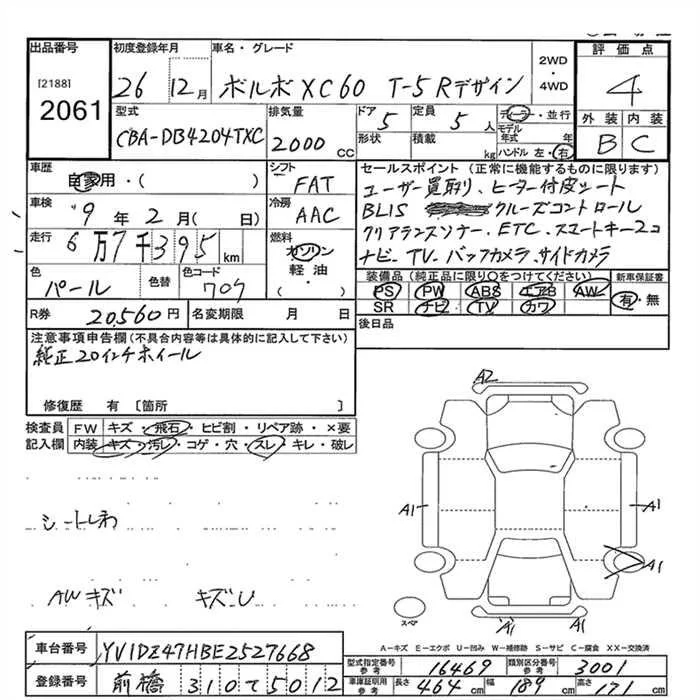 出品番号 [2188] 2061
初度登録年月 26 12月
車名・グレード ボルボ XC60 T-5 Rデザイン
2WD・4WD
評価点 4
外装 B 内装 C
型式 CBA-DB4204TXC
排気量 2000 CC
ドア 5 形状
定員 5人 積載 kg
ディーラー・並行
モデル年式 年
ハンドル 左・右
車歴 自家用・( )
シフト FAT
車検 9年2月( 日)
冷房 AAC
走行 6万7千395km
燃料 ガソリン 軽油 ・( )
色 パール 色替 色コード 707
R券 20,560円 名変期限 月 日
セールスポイント(正常に機能するものに限ります)
ユーザー買取り、ヒーター付皮シート
BLIS クルーズコントロール
クリアランスソナー、ETC、スマートキー2コ
ナビ、TV、バックカメラ、サイドカメラ
装備品(純正品に限り○をつけてください)
PS PW ABS エアB AW
SR ナビ TV カワ
新車保証書 有・無
後日品
注意事項申告欄(不具合内容等は具体的に記入して下さい)
純正20インチホイール
修復歴 有 〔箇所 〕
検査員記入欄
FW キズ・飛石・ヒビ割・リペア跡・×要
内装 キズ・汚レ・コゲ・穴・スレ・キレ・破レ
シートしわ
AWキズ キズ-U
A2
A1 A1
A1
A1 A1
スペア
A-キズ E-エクボ U-凹み W-補修跡 S-サビ C-腐食 XX-交換済
車台番号 YV1DZ47HBE2527668
登録番号 前橋 310て5012
型式指定番号参考 16469 類別区分番号参考 3001
車庫証明用参考 長さ 464cm 幅 189cm 高さ 171cm